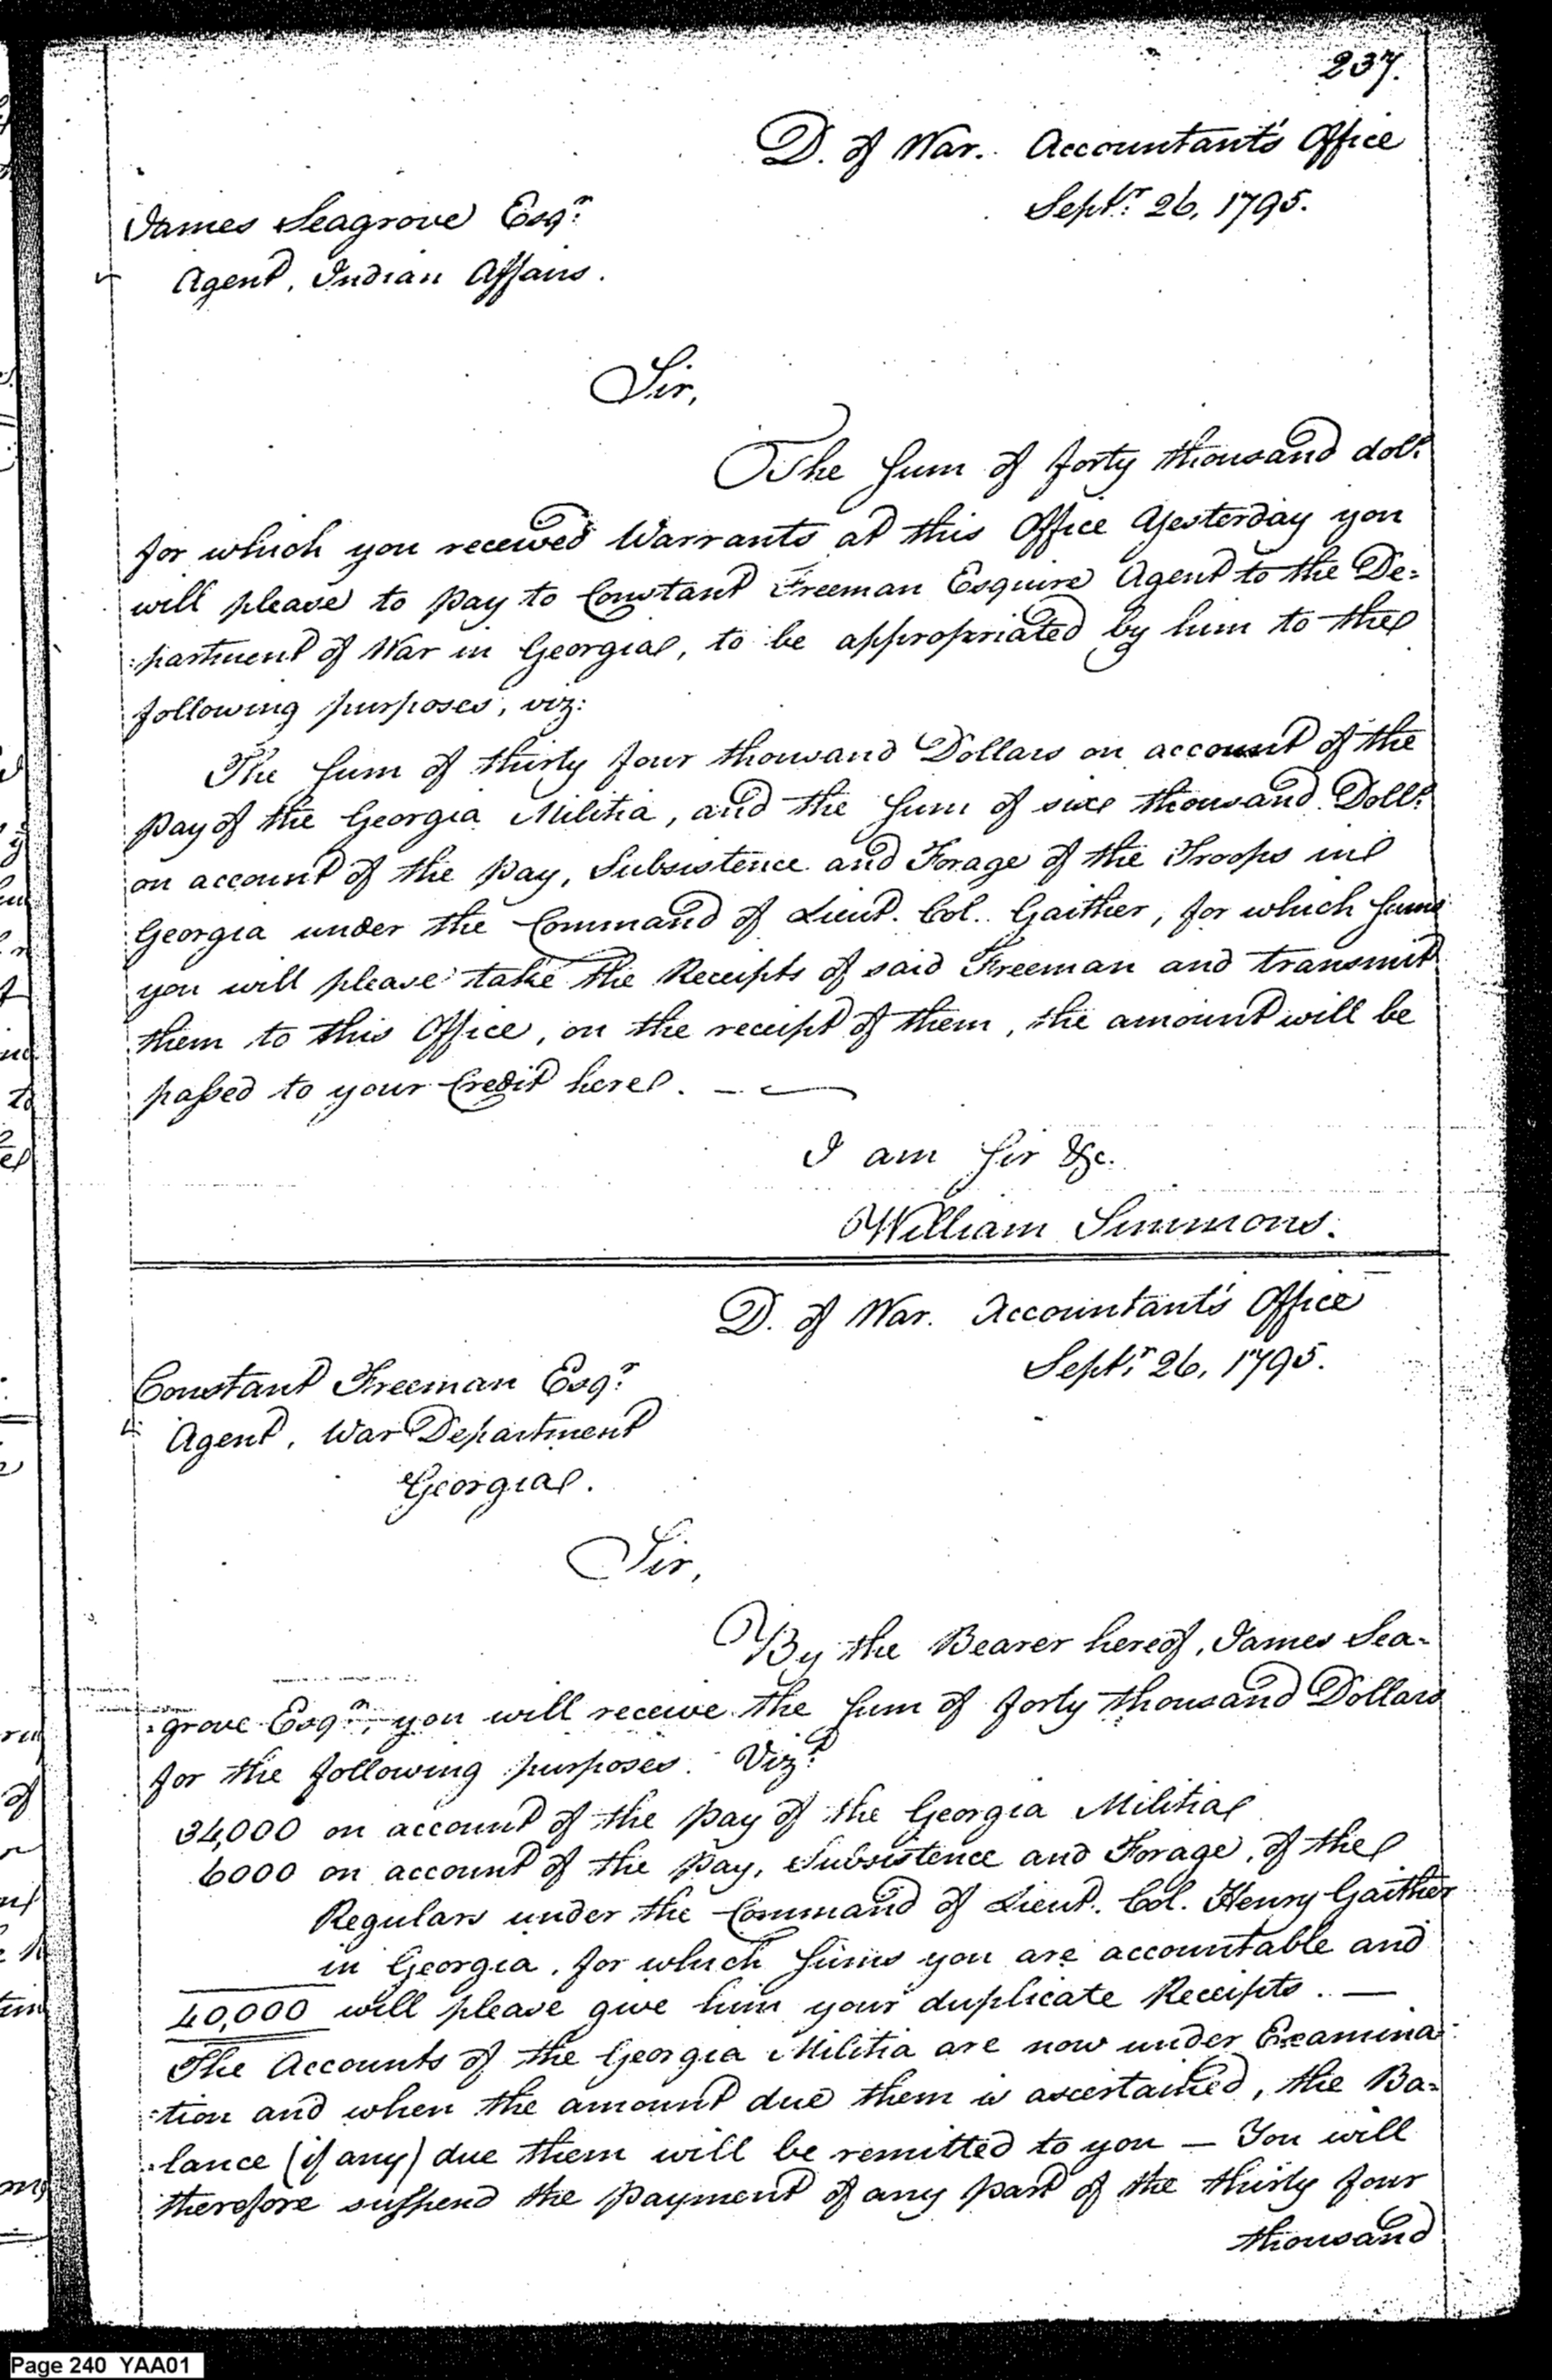 237.
D. of War. Accountant's Office
Septr. 26, 1795.
James Seagrove Esqr.
Agent, Indian Affairs.
Sir,
The Sum of forty thousand dolls.
for which you received Warrants at this Office Yesterday you
will please to pay to Constant Freeman Esquire Agent to the De-
:partment of War in Georgia, to be appropriated by him to the
following purposes, viz:
The Sum of thirty four thousand Dollars on account of the
pay of the Georgia Militia, and the Sum of six thousand Dolls.
on account of the pay, Subsistence and Forage of the Troops in
Georgia under the Command of Lieut. Col. Gaither, for which Sums
you will please take the Receipts of said Freeman and transmit
them to this Office, on the receipt of them, the amount will be
passed to your Credit here. —
I am Sir &c.
William Simmons.
D. of War. Accountant's Office
Septr. 26, 1795.
Constant Freeman Esqr.
Agent, War Department
Georgia.
Sir,
By the Bearer hereof, James Sea-
:grove Esqr., you will receive the Sum of forty thousand Dollars
for the following purposes. Vizt.
34,000 on account of the pay of the Georgia Militia
6000 on account of the pay, Subsistence and Forage, of the
Regulars under the Command of Lieut. Col. Henry Gaither
in Georgia, for which Sums you are accountable and
40,000 will please give him your duplicate Receipts. —
The Accounts of the Georgia Militia are now under Examina:
:tion and when the amount due them is ascertained, the Ba-
:lance (if any) due them will be remitted to you — You will
therefore suspend the payment of any part of the thirty four
thousand
Page 240 YAA01